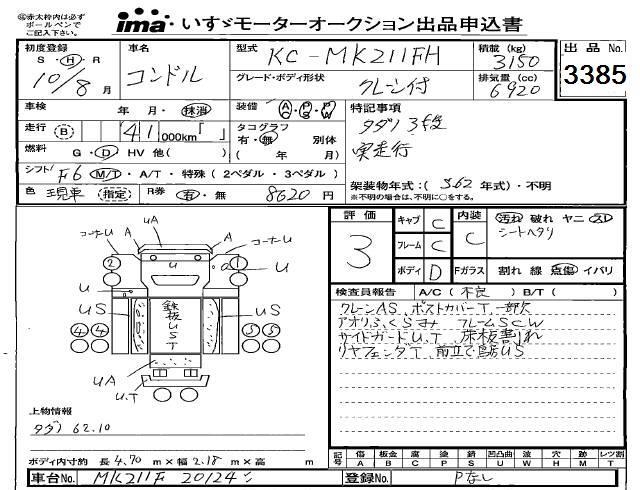 ㊟赤太枠内は必ず
ボールペンで
ご記入下さい。
ima いすゞモーターオークション出品申込書
初度登録
S・H・R
10年8月
車名
コンドル
型式
KC-MK211FH
積載 (kg)
3150
グレード・ボディ形状
クレーン付
排気量 (cc)
6920
出品No.
3385
車検 年 月・抹消
装備 AC・PS・PW
特記事項
タダノ3段
実走行
走行 B 41,000km「 」
タコグラフ
有・無 別体
( 年 月)
燃料 G・D HV 他( )
シフト F6 M/T・A/T・特殊(2ペダル・3ペダル)
架装物年式:(S62年式)・不明
※不明の場合は、不明に○をする。
色 現車 指定 R券 有・無 8620円
評価
3
キャブ C
フレーム C
ボディ D
内装
C
Fガラス
汚れ 破れ ヤニ スレ
シートヘタリ
割れ 線 点傷 イバリ
検査員報告 A/C(不良) B/T( )
クレーンAS、ポストカバーT、一部欠
アオリふくらみ フレームSCW
サイドガードU.T 床板割れ
リヤフェンダT、前立て鳥居US
コーナーU
UA
A
A
コーナーU
U
2
1
a
U
U
US
US
鉄板UST
4 4
5 5
UA
U.T
上物情報
タダノ 62.10
ボディ内寸約 長4.70m×幅2.18m×高 m
記号
傷 板金 腐 塗 錆 凹凸曲 波 穴 歩 レツ割
A B C P S U W H M T
車台No. MK211F 20124
登録No. Pなし